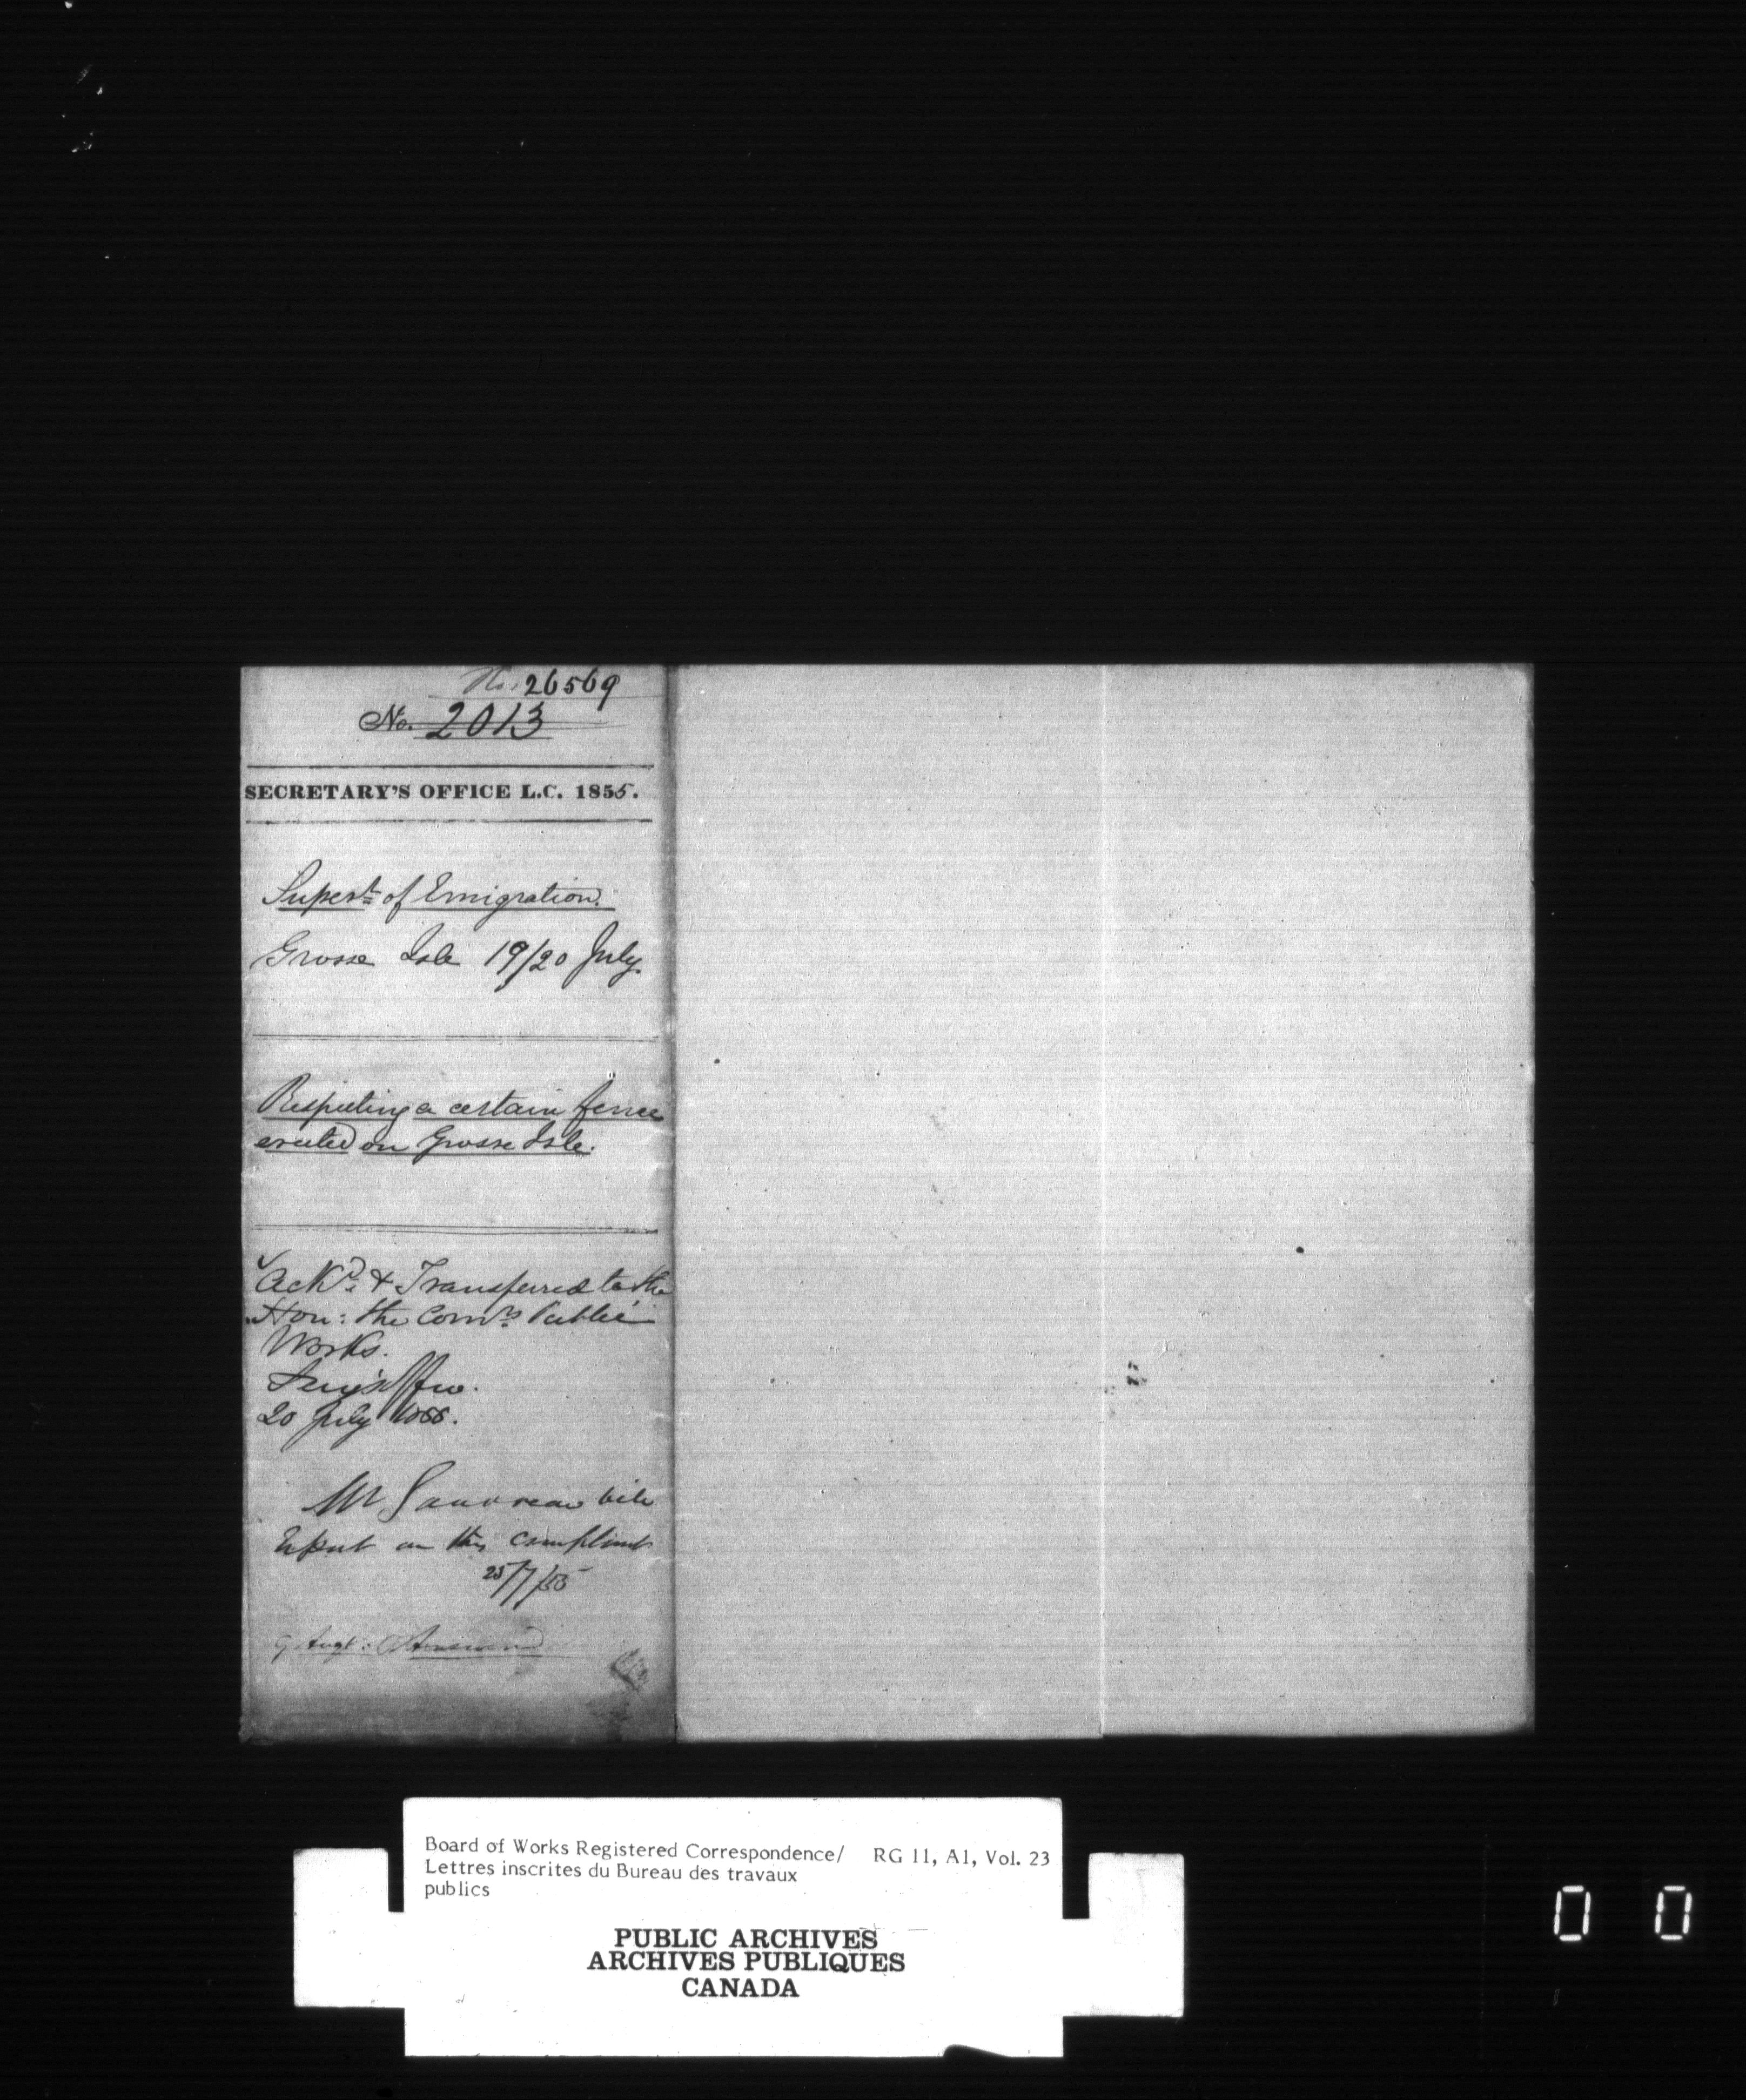 No. 26569
No. 2013
SECRETARY'S OFFICE L.C. 1855.
Supert of Emigration.
Grosse Isle 19/20 July.
Respecting a certain fence
erected on Grosse Isle.
Ackd. & Transferred to the
Hon: the Comrs. Public
Works.
20 July 1855.
Mr Gauvreau will
report on this complaint
25/7/55
9 Augt: Answered
Board of Works Registered Correspondence/ RG 11, A1, Vol. 23
Lettres inscrites du Bureau des travaux
publics
PUBLIC ARCHIVES
ARCHIVES PUBLIQUES
CANADA
0 0